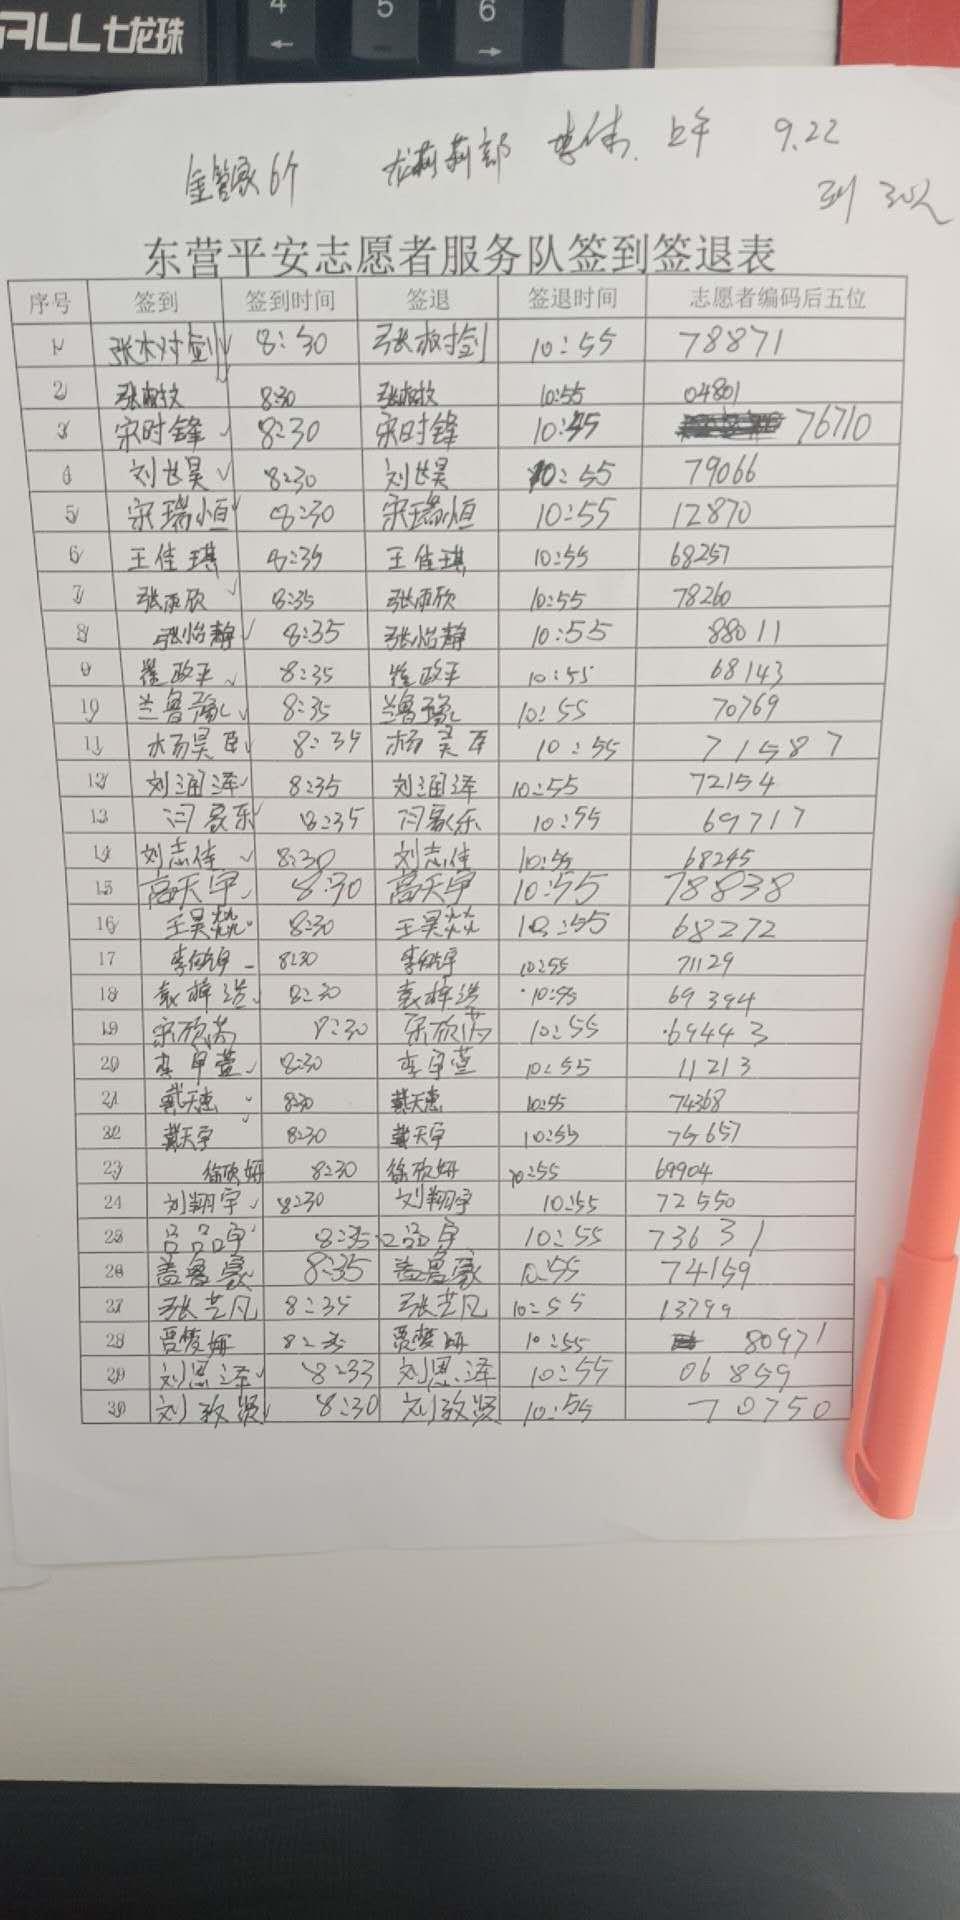 ALL七龙珠 4 5 6
← →
金管家6个 龙莉莉部 上午 9.22
到 30人
东营平安志愿者服务队签到签退表
序号 签到 签到时间 签退 签退时间 志愿者编码后五位
1 8:30 10:55 78871
2 8:30 10:55 04801
3 宋时锋 8:30 宋时锋 10:45 76710
4 刘世昊 8:30 刘世昊 10:55 79066
5 宋瑞恒 8:30 宋瑞恒 10:55 12870
6 王佳琪 8:35 王佳琪 10:55 68257
7 张雨欣 8:35 张雨欣 10:55 78260
8 张怡静 8:35 张怡静 10:55 88011
9 崔政平 8:35 崔政平 10:55 68143
10 兰鲁豫 8:35 兰鲁豫 10:55 70769
11 杨昊臣 8:35 杨昊臣 10:55 71587
12 刘润泽 8:35 刘润泽 10:55 72154
13 闫家乐 8:35 闫家乐 10:55 69717
14 刘志佳 8:30 刘志佳 10:55 68245
15 高天宇 8:30 高天宇 10:55 78838
16 王昊燚 8:30 王昊焱 10:55 68272
17 8:30 10:55 71129
18 袁梓洪 8:30 袁梓洪 10:55 69394
19 宋欣芮 8:30 10:55 69443
20 李宇萱 8:30 李宇萱 10:55 11213
21 戴天惠 8:30 戴天惠 10:55 74368
22 戴天宇 8:30 戴天宇 10:55 75657
23 徐欣妍 8:30 徐欣妍 10:55 69904
24 刘翔宇 8:30 刘翔宇 10:55 72550
25 吕品宇 8:35 吕品宇 10:55 73631
26 盖鲁豪 8:35 盖鲁豪 10:55 74159
27 张艺凡 8:35 张艺凡 10:55 13799
28 贾梦妍 8:35 贾梦妍 10:55 80971
29 刘恩泽 8:33 刘恩泽 10:55 06859
30 刘致贤 8:30 刘致贤 10:55 70750